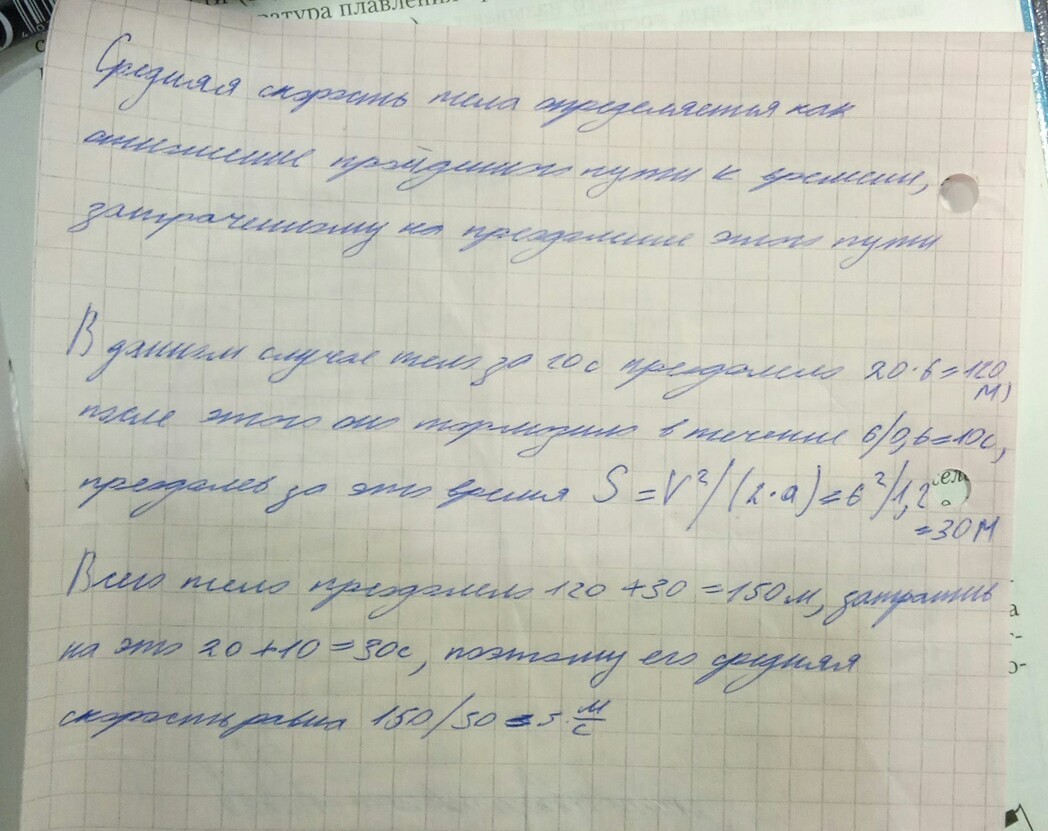 ратура плавления
Средняя скорость тела определяется как
отношение пройденного пути к времени,
затраченному на преодоление этого пути
В данном случае тело за 20с преодолело 20·6=120
м,
после этого оно тормозило в течение 6/0,6=10с,
преодолев за это время S=V²/(2·a)=6²/1,2
=30м
Всего тело преодолело 120+30=150м, затратив
на это 20+10=30с, поэтому его средняя
скорость равна 150/30=5 м/с